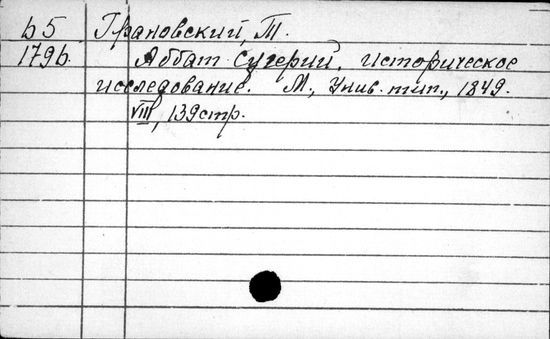 b5 Грановский, Т.
179б. Аббат Сугерий. Историческое
исследование. М., Унив. тип., 1849.
VIII, 139 стр.